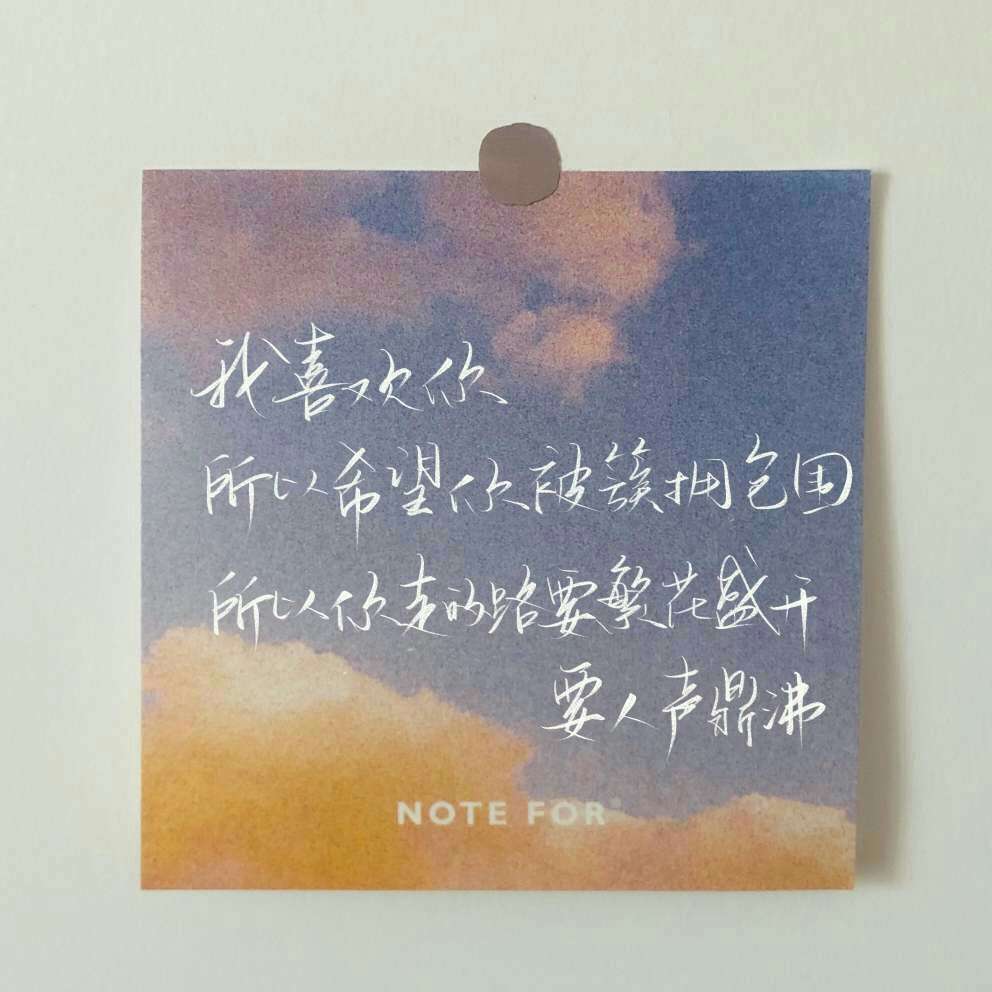 我喜欢你
所以希望你被簇拥包围
所以你走的路要繁花盛开
要人声鼎沸
NOTE FOR